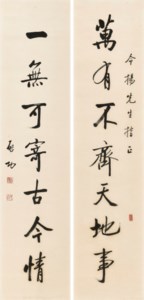 萬有不齊天地事
今楊先生指正
一無可寄古今情
啟功